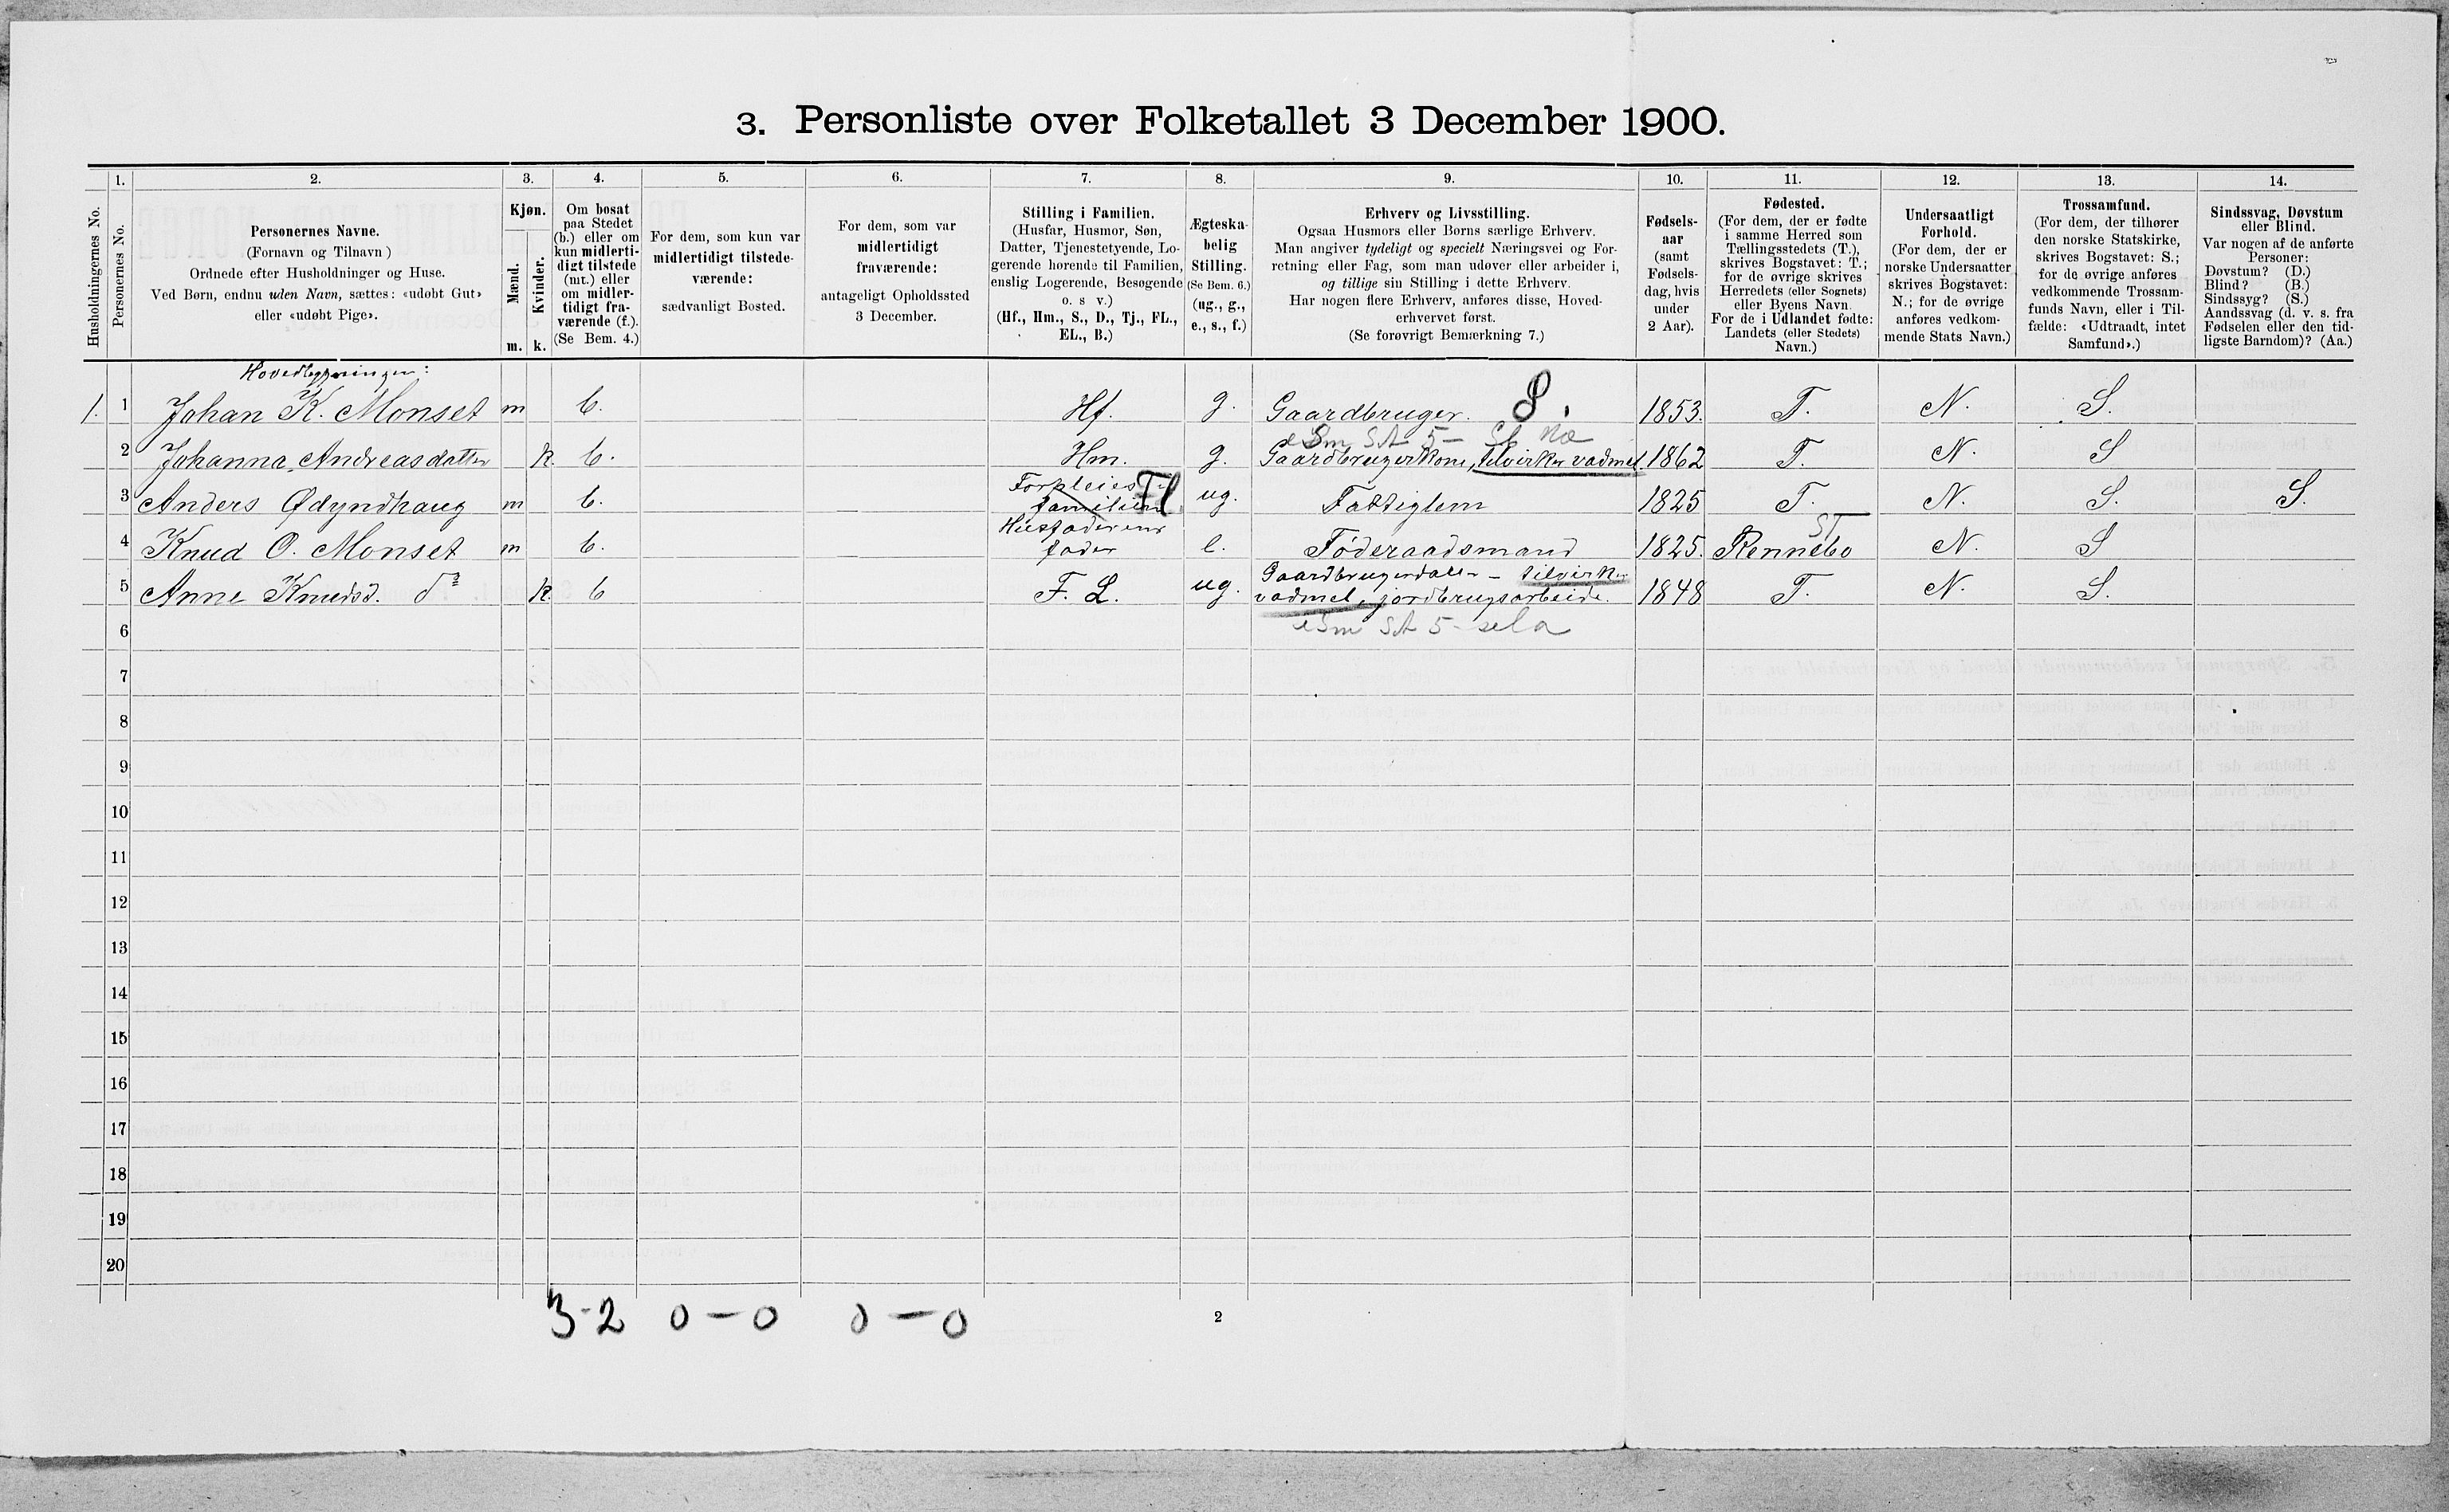 3. Personliste over Folketallet 3 December 1900.
Husholdningernes No.
1.
Personernes No.
2.
Personernes Navne.
(Fornavn og Tilnavn)
Ordnede efter Husholdninger og Huse.
Ved Børn, endnu uden Navn, sættes: «udøbt Gut»
eller «udøbt Pige».
3.
Kjøn.
Mænd.
Kvinder.
m. k.
4.
Om bosat
paa Stedet
(b.) eller om
kun midlerti-
digt tilstede
(mt.) eller
om midler-
tidigt fra-
værende (f.).
(Se Bem. 4.)
5.
For dem, som kun var
midlertidigt tilstede-
værende:
sædvanligt Bosted.
6.
For dem, som var
midlertidigt
fraværende:
antageligt Opholdssted
3 December.
7.
Stilling i Familien.
(Husfar, Husmor, Søn,
Datter, Tjenestetyende, Lo-
gerende hørende til Familien,
enslig Logerende, Besøgende
o. s v.)
(Hf., Hm., S., D., Tj., FL.,
EL., B.)
8.
Ægteska-
belig
Stilling.
(Se Bem. 6.)
(ug., g.,
e., s., f.)
9.
Erhverv og Livsstilling.
Ogsaa Husmors eller Børns særlige Erhverv.
Man angiver tydeligt og specielt Næringsvei og For-
retning eller Fag, som man udøver eller arbeider i,
og tillige sin Stilling i dette Erhverv.
Har nogen flere Erhverv, anføres disse, Hoved-
erhvervet først.
(Se forøvrigt Bemærkning 7.)
10.
Fødsels-
aar
(samt
Fødsels-
dag, hvis
under
2 Aar).
11.
Fødested.
(For dem, der er fødte
i samme Herred som
Tællingsstedets (T.),
skrives Bogstavet: T.;
for de øvrige skrives
Herredets (eller Sognets)
eller Byens Navn.
For de i Udlandet fødte:
Landets (eller Stedets)
Navn.)
12.
Undersaatligt
Forhold.
(For dem, der er
norske Undersaatter,
skrives Bogstavet:
N.; for de øvrige
anføres vedkom-
mende Stats Navn.)
13.
Trossamfund.
(For dem, der tilhører
den norske Statskirke,
skrives Bogstavet: S.;
for de øvrige anføres
vedkommende Trossam-
funds Navn, eller i Til-
fælde: «Udtraadt, intet
Samfund».)
14.
Sindssvag, Døvstum
eller Blind.
Var nogen af de anførte
Personer:
Døvstum? (D.)
Blind? (B.)
Sindssyg? (S.)
Aandssvag (d. v. s. fra
Fødselen eller den tid-
ligste Barndom)? (Aa.)
Hovedbygningen:
1. 1 Johan K. Monset m b. Hf. g. Gaardbruger. 8. 1853. T. N. S.
Sm St 5 -
2 Johanna Andreasdatter k. b. Hm. g. Gaardbrugerkone, tilvirker vadmel. 1862 T. N. S
3 Anders Ødyndhaug m b. Forpleies i familien Fl. ug. Fattiglem 1825 T. N. S. S.
4 Knud O. Monset m b. Husfaderens fader e. Føderaadsmand 1825. Rennebo ST N. S
5 Anne Knudsd. do k. b F. L. ug. Gaardbrugerdatter - tilvirker
vadmel, jordbrugsarbeide. 1848 T. N. S.
Sm St 5 -
6
7
8
9
10
11
12
13
14
15
16
17
18
19
20
3-2 0-0 0-0
2